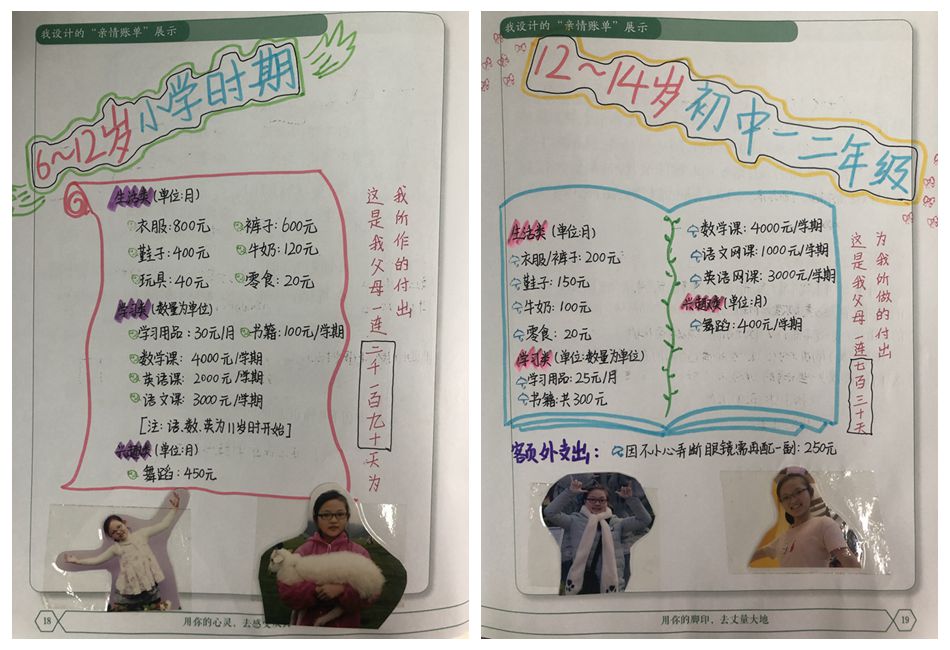 我设计的“亲情账单”展示
6~12岁小学时期
生活类(单位:月)
衣服:800元 裤子:600元
鞋子:400元 牛奶:120元
玩具:40元 零食:20元
学习类(数量为单位)
学习用品:30元/月 书籍:100元/学期
数学课:4000元/学期
英语课:2000元/学期
语文课:3000元/学期
[注:语、数、英为11岁时开始]
兴趣类(单位:月)
舞蹈:450元
这是我父母一连二千一百九十天为
我所作的付出
18
用你的心灵,去感受
我设计的“亲情账单”展示
12~14岁初中一二年级
生活类(单位:月)
衣服/裤子:200元
鞋子:150元
牛奶:100元
零食:20元
学习类(单位:数量为单位)
学习用品:25元/月
书籍:共300元
数学课:4000元/学期
语文网课:1000元/学期
英语网课:3000元/学期
兴趣类(单位:月)
舞蹈:400元/学期
这是我父母一连七百三十天
为我所做的付出
额外支出:因不小心弄断眼镜需再配一副:250元
用你的脚印,去丈量大地
19